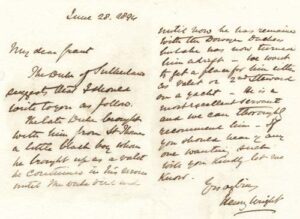 June 28. 1894
My dear Grant
The Duke of Sutherland
suggests that I should
write to you as follows.
The late Duke brought
with him from St
a little black boy whom
he brought up as a valet
he continued in his service
until the Duke died and
until now he has remained
with the Dowager Duchess
but she has now turned
him adrift - he wants
to get a place for him either
as valet or 2nd steward
on a yacht - He is a
most excellent servant
and we can thoroughly
recommend him - If
you should hear of any
one wanting such
will you kindly let me
know.
Henry Wright